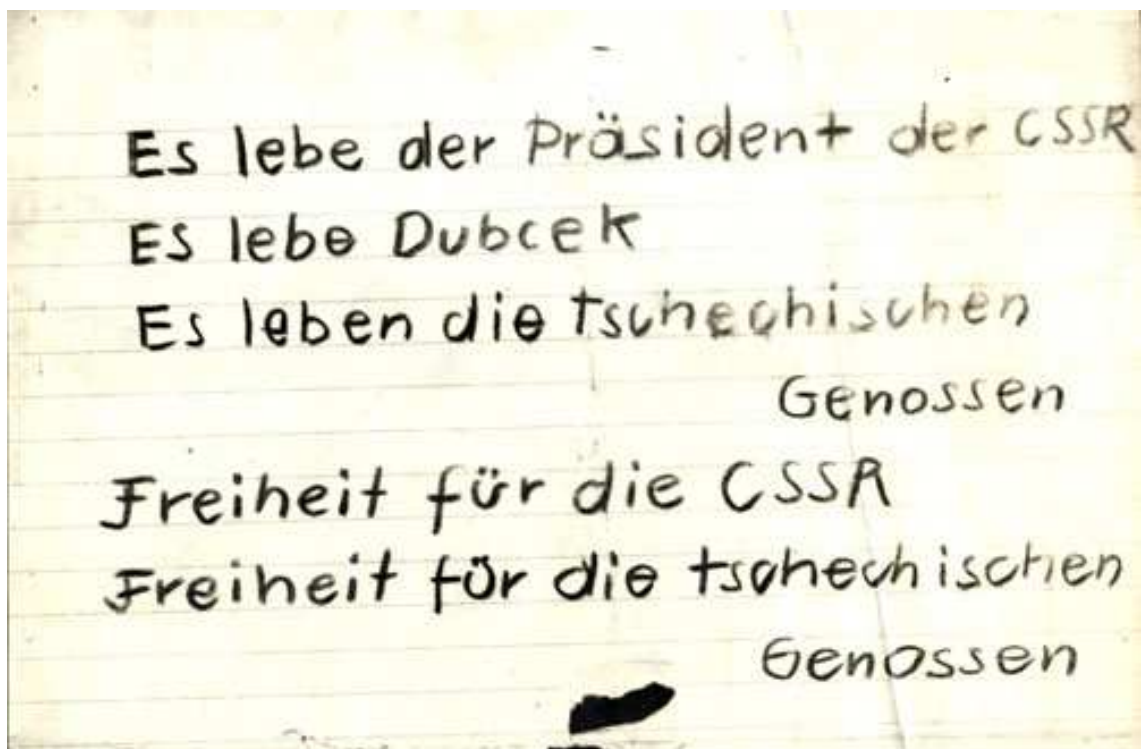 Es lebe der Präsident der CSSR
ES lebe Dubcek
Es leben die tschechischen
Genossen
Freiheit für die CSSR
Freiheit für die tschechischen
Genossen